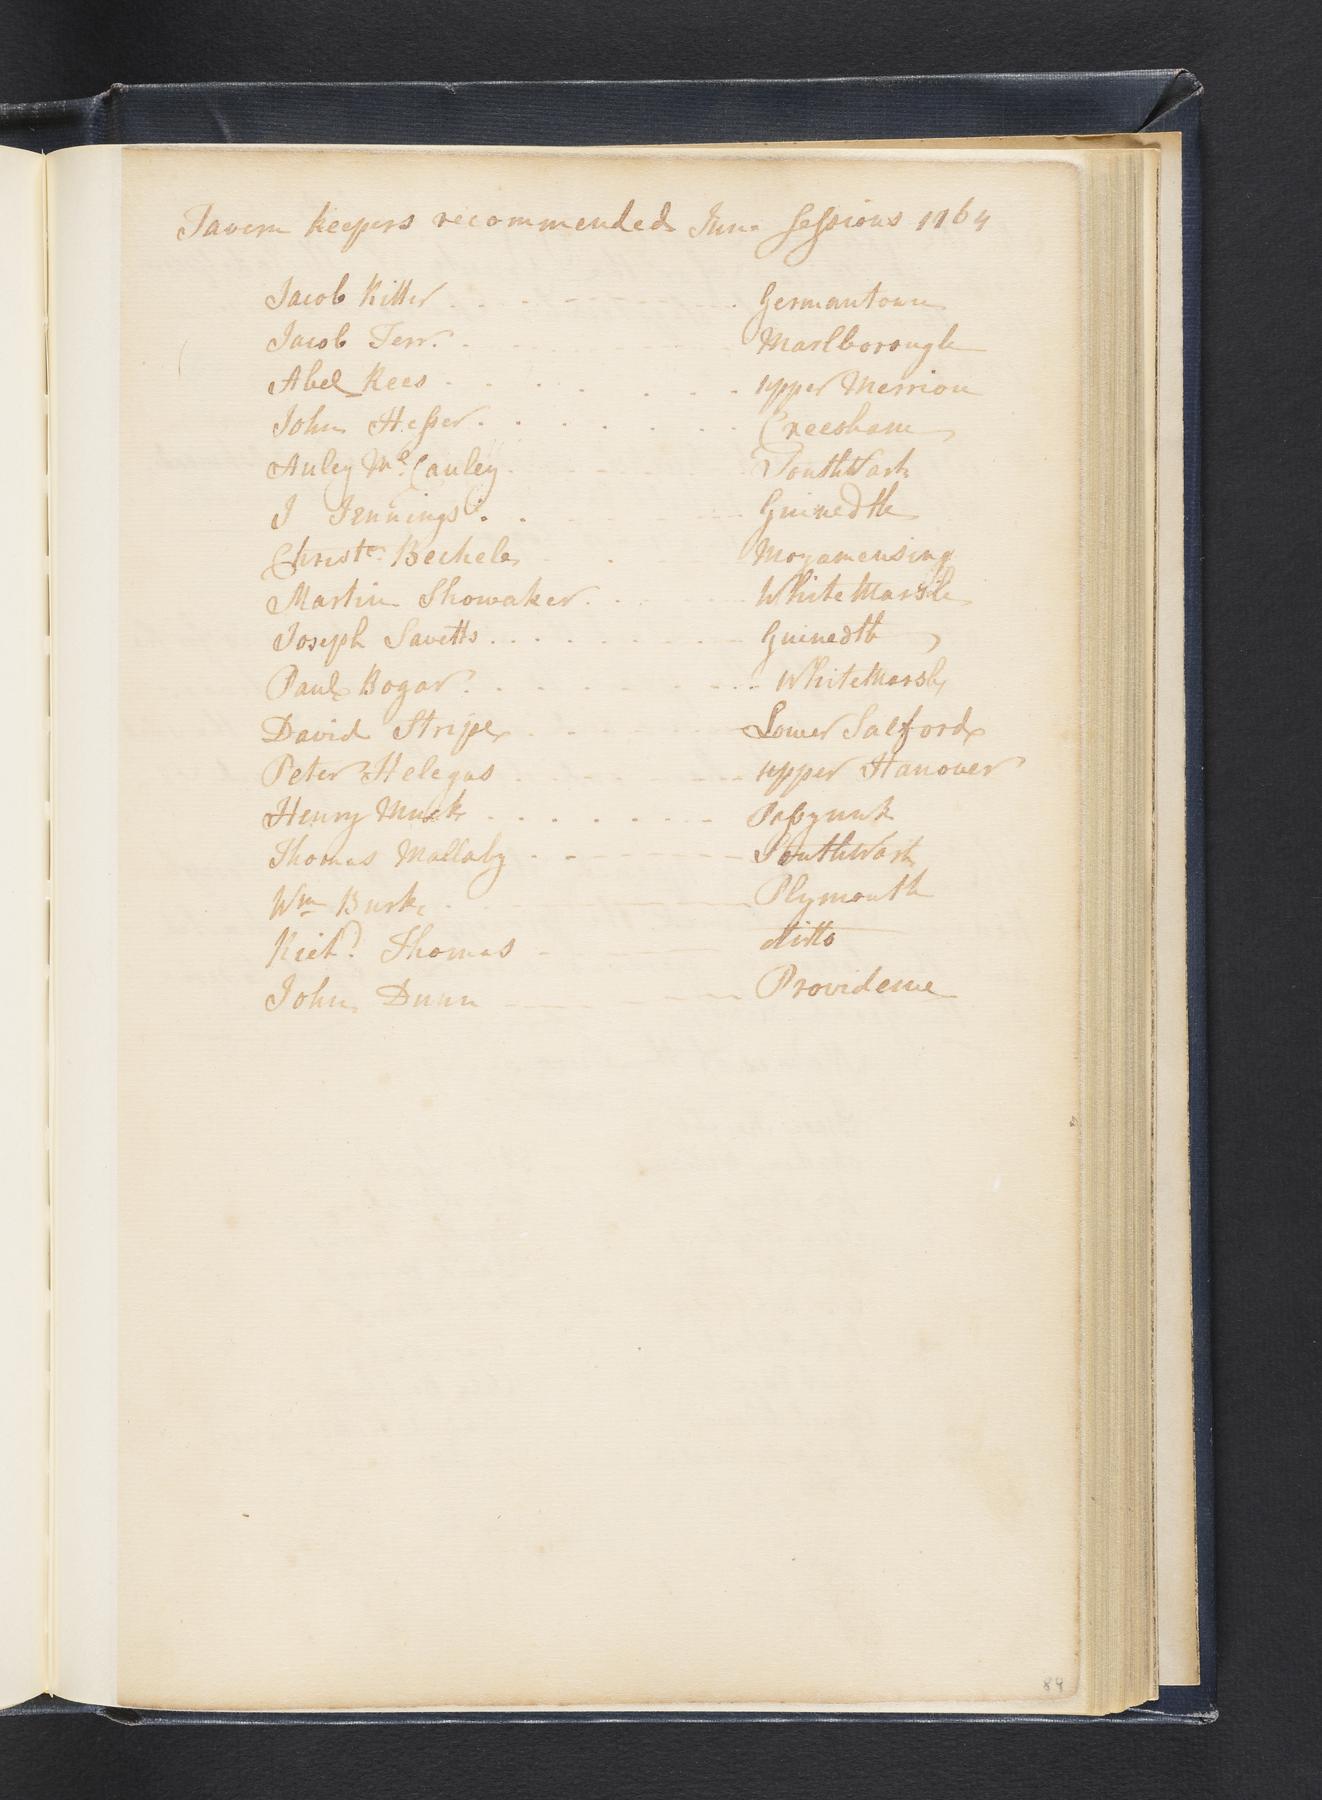 Tavern keepers recommended June Sessions 1764
Jacob Ritter Germantown
Jacob Marlborough
Abel Rees upper Merrion
John Hesser Creesham
Auley Mc. Cauley Southwark
J Jennings Guinedth
Christr. Moyamensing
Martin Showaker White Marsh
Joseph Lavetts Guinedth
Paul Bogar White Marsh
David Stripe Lower Salford
Peter Helegas upper Hanover
Henry Muck Passyunk
Thomas Mallaby Southwark
Wm Burk Plymouth
Richd. Thomas ditto
John Dunn Providence
84